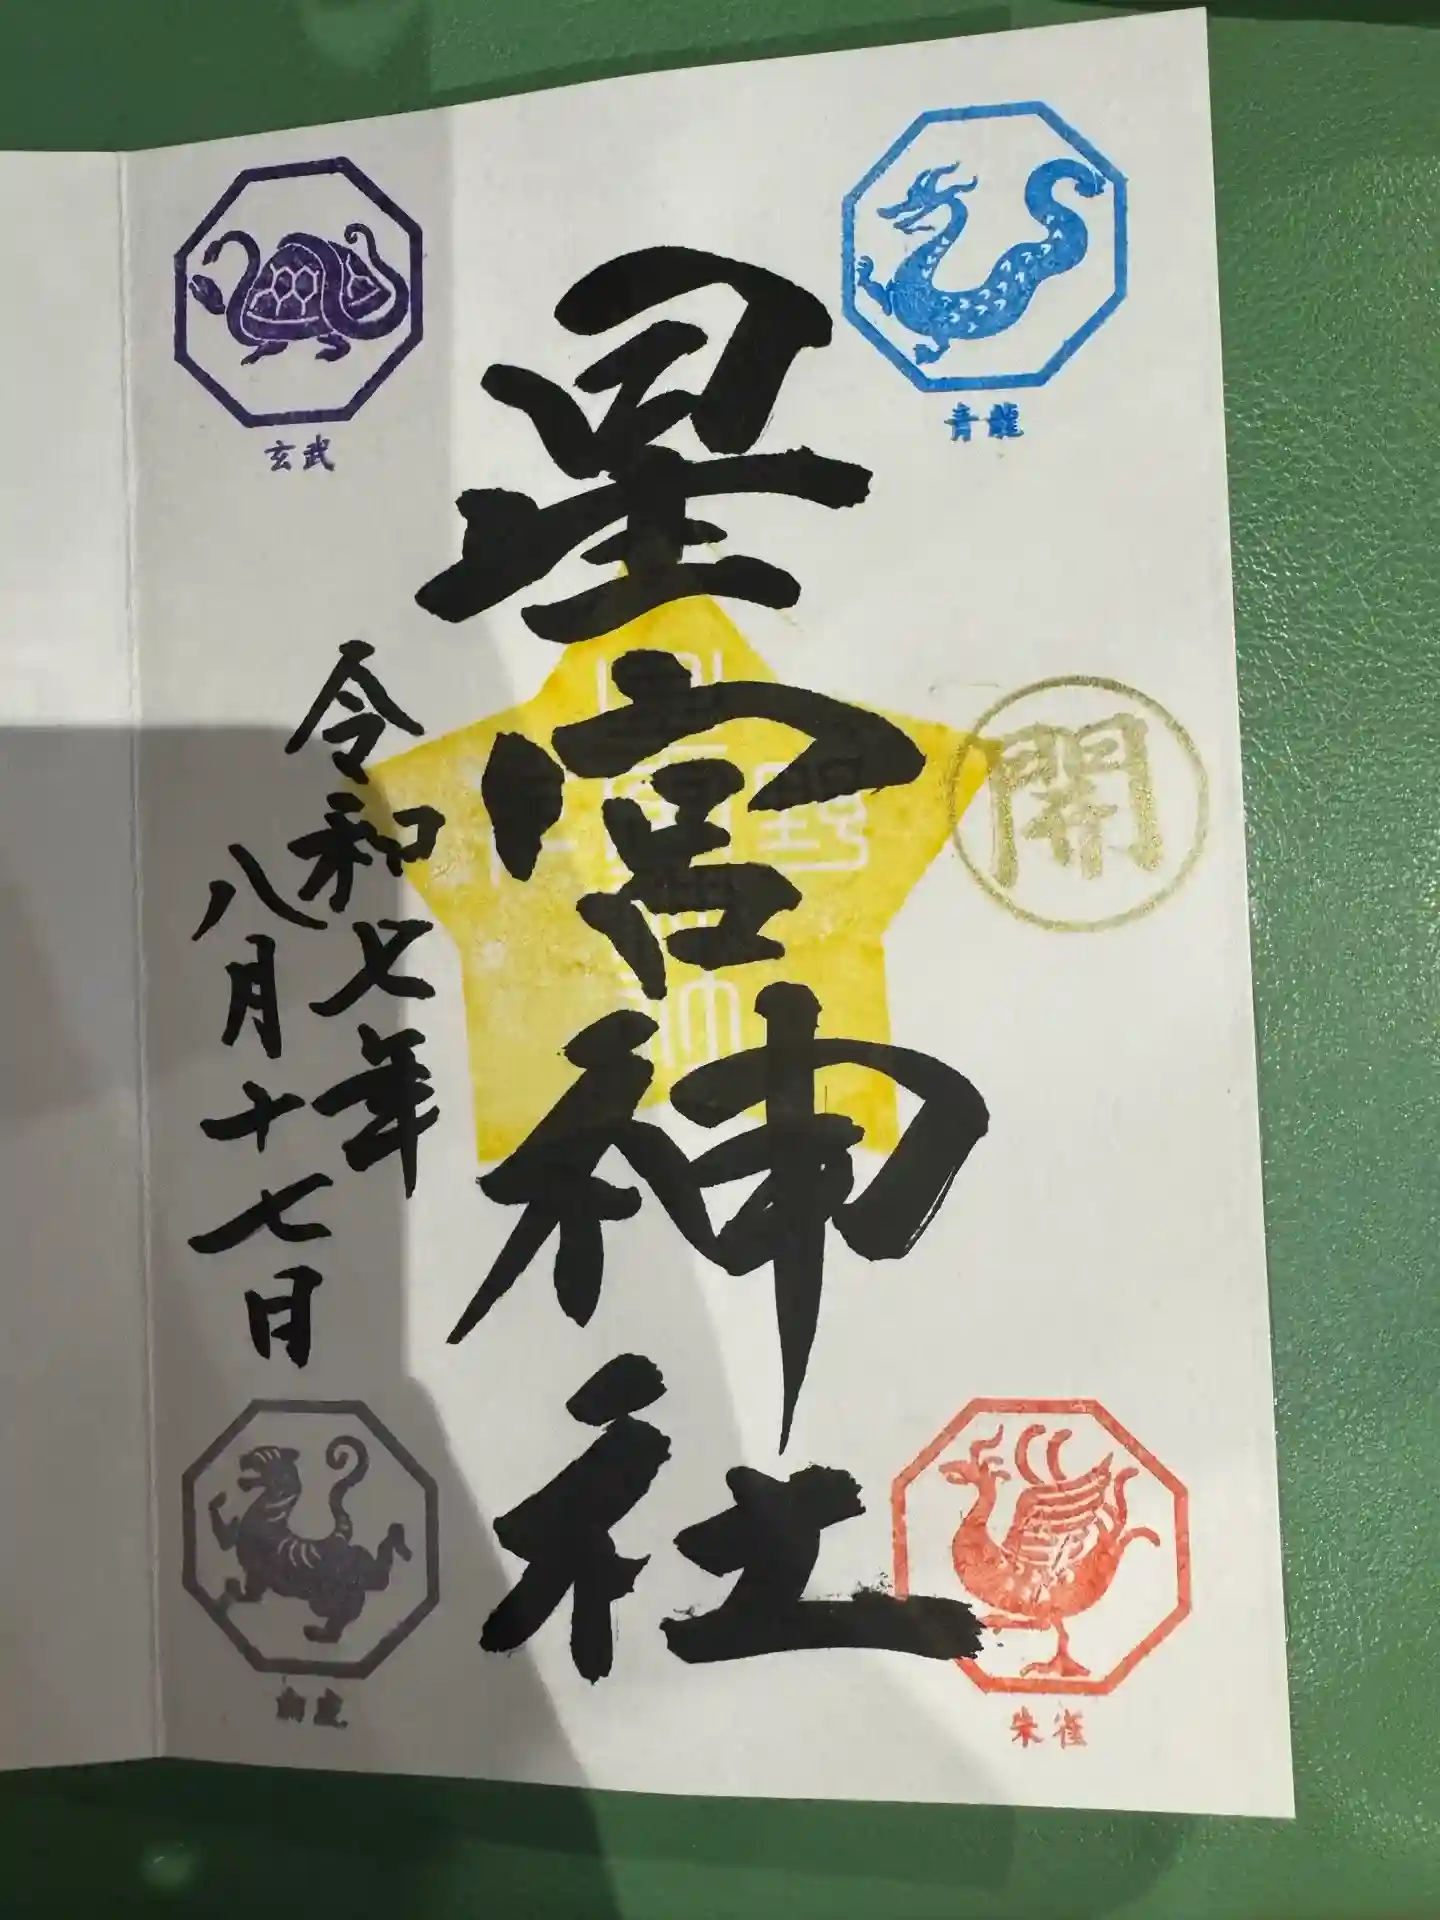 青龍
開
朱雀
星宮神社
令和七年
八月十七日
玄武
白虎